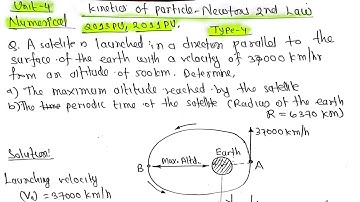 Unit-4 kinetics of particle-Newtons 2nd Law
Numerical 2013PU, 2011PU. Type-4
Q. A satelite is launched in a direction parallel to the
surface of the earth with a velocity of 37000 km/hr
from an altitude of 500km. Determine,
a) The maximum altitude reached by the satelite
b) The periodic time of the satelite (Radius of the earth
R = 6370 km)
Solution:
Launching velocity
(V₀) = 37000 km/h
37000 km/h
Earth
B Max. Altd. A